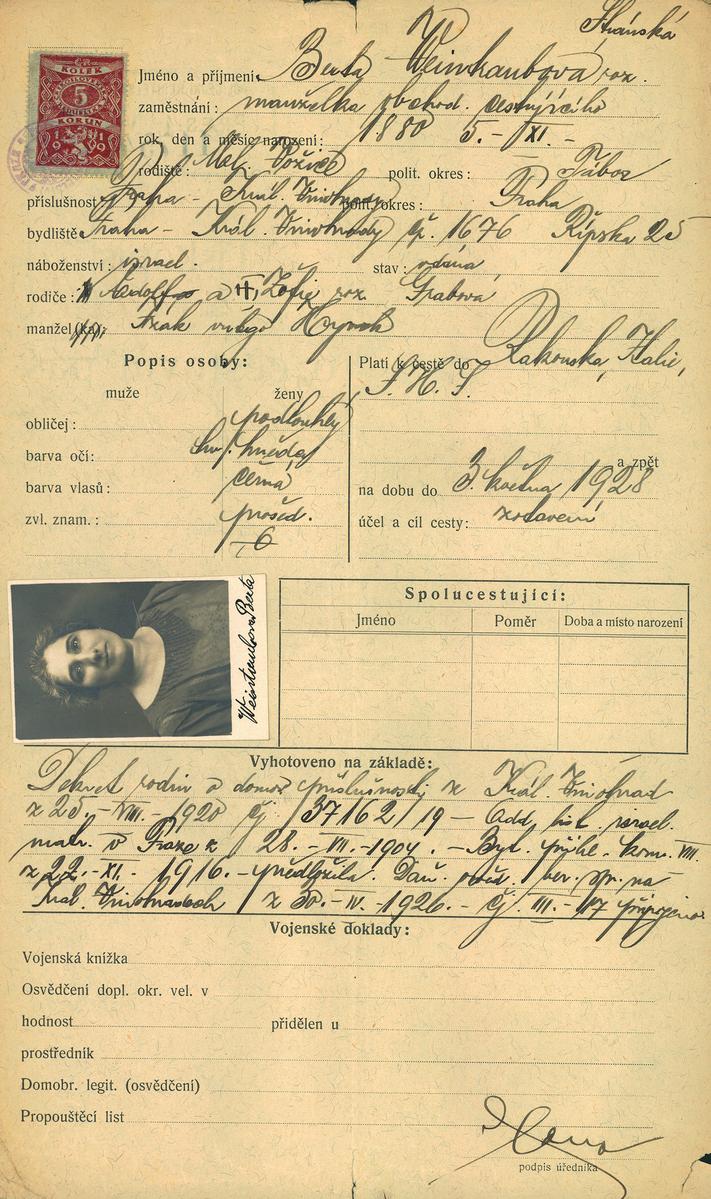 Stránská
KOLEK
5
KORUN
19 19
Jméno a příjmení: Berta Weintraubová roz.
zaměstnání: manželka obchod. cestujícího
rok, den a měsíc narození: 1880 5.-XI.-
rodiště: Mal. Požice polit. okres: Tábor
příslušnost: Praha - Král. Vinohrady polit. okres: Praha
bydliště: Praha - Král. Vinohrady č. 1676 Řipská 25
náboženství: israel. stav: vdaná
rodiče: Adolf a Žofie roz. Grabová
manžel(ka): Izak vulgo Hynek
Popis osoby:
muže ženy
obličej: podlouhlý
barva očí: hnědá
barva vlasů: černá
zvl. znam.: prošed.
Platí k cestě do Rakouska, Italie,
S. H. S.
a zpět
na dobu do 3. května 1928
účel a cíl cesty: zotavení
Weintraubova Berta
Spolucestující:
Jméno Poměr Doba a místo narození
Vyhotoveno na základě:
Dekret rodin. a domov. příslušnosti z Král. Vinohrad
z 25.-VIII.-1920 čj. 37162/19 - Odd. list israel.
matr. v Praze z 28.-VII.-1904. - Byt. přihl. kom. VIII.
z 22.-XI.-1916.- předložila. Daň. osvěd. ber. spr. na
Král. Vinohradech z 30.-IV.-1926.- čj. III.-117 připojeno.
Vojenské doklady:
Vojenská knížka
Osvědčení dopl. okr. vel. v
hodnost přidělen u
prostředník
Domobr. legit. (osvědčení)
Propouštěcí list
podpis úředníka